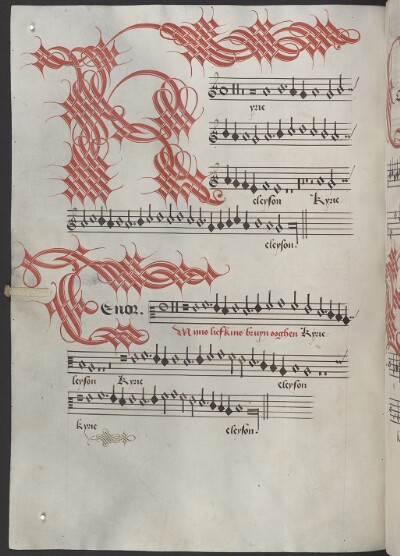 Kyrie
eleyson Kyrie
eleyson
Tenor.
Mijns liefkins bruyn ooghen Kyrie
leyson Kyrie eleyson
Kyrie eleyson